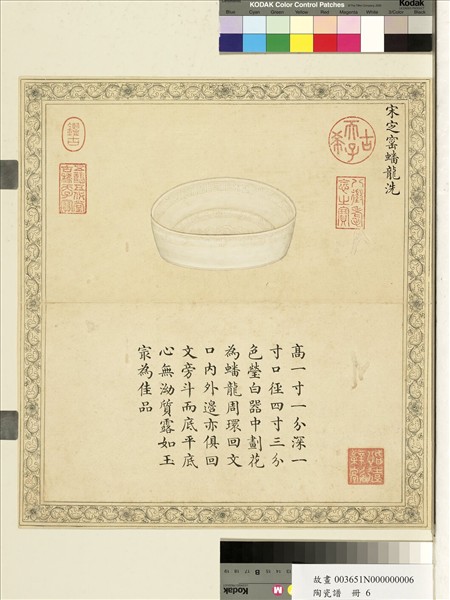 KODAK Color Control Patches
Kodak
Blue
Cyan
Green
Yellow
Red
Magenta
White
3/Color
Black
宋定窑蟠龍洗
古希天子
八徵耄念之寶
鑑古
五福五代堂古稀天子寶
高一寸一分深一
寸口徑四寸三分
色瑩白器中劃花
為蟠龍周環回文
口內外邉亦俱回
文旁斗而底平底
心無泑質露如玉
㝡為佳品
故畫 003651N000000006
陶瓷譜 冊 6